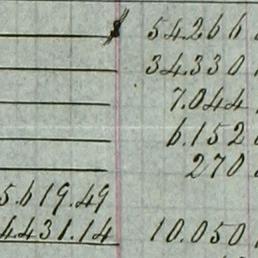 $ 54.266
34.330
7.044
6.152
270
5.619.49
4.431.14 10.050